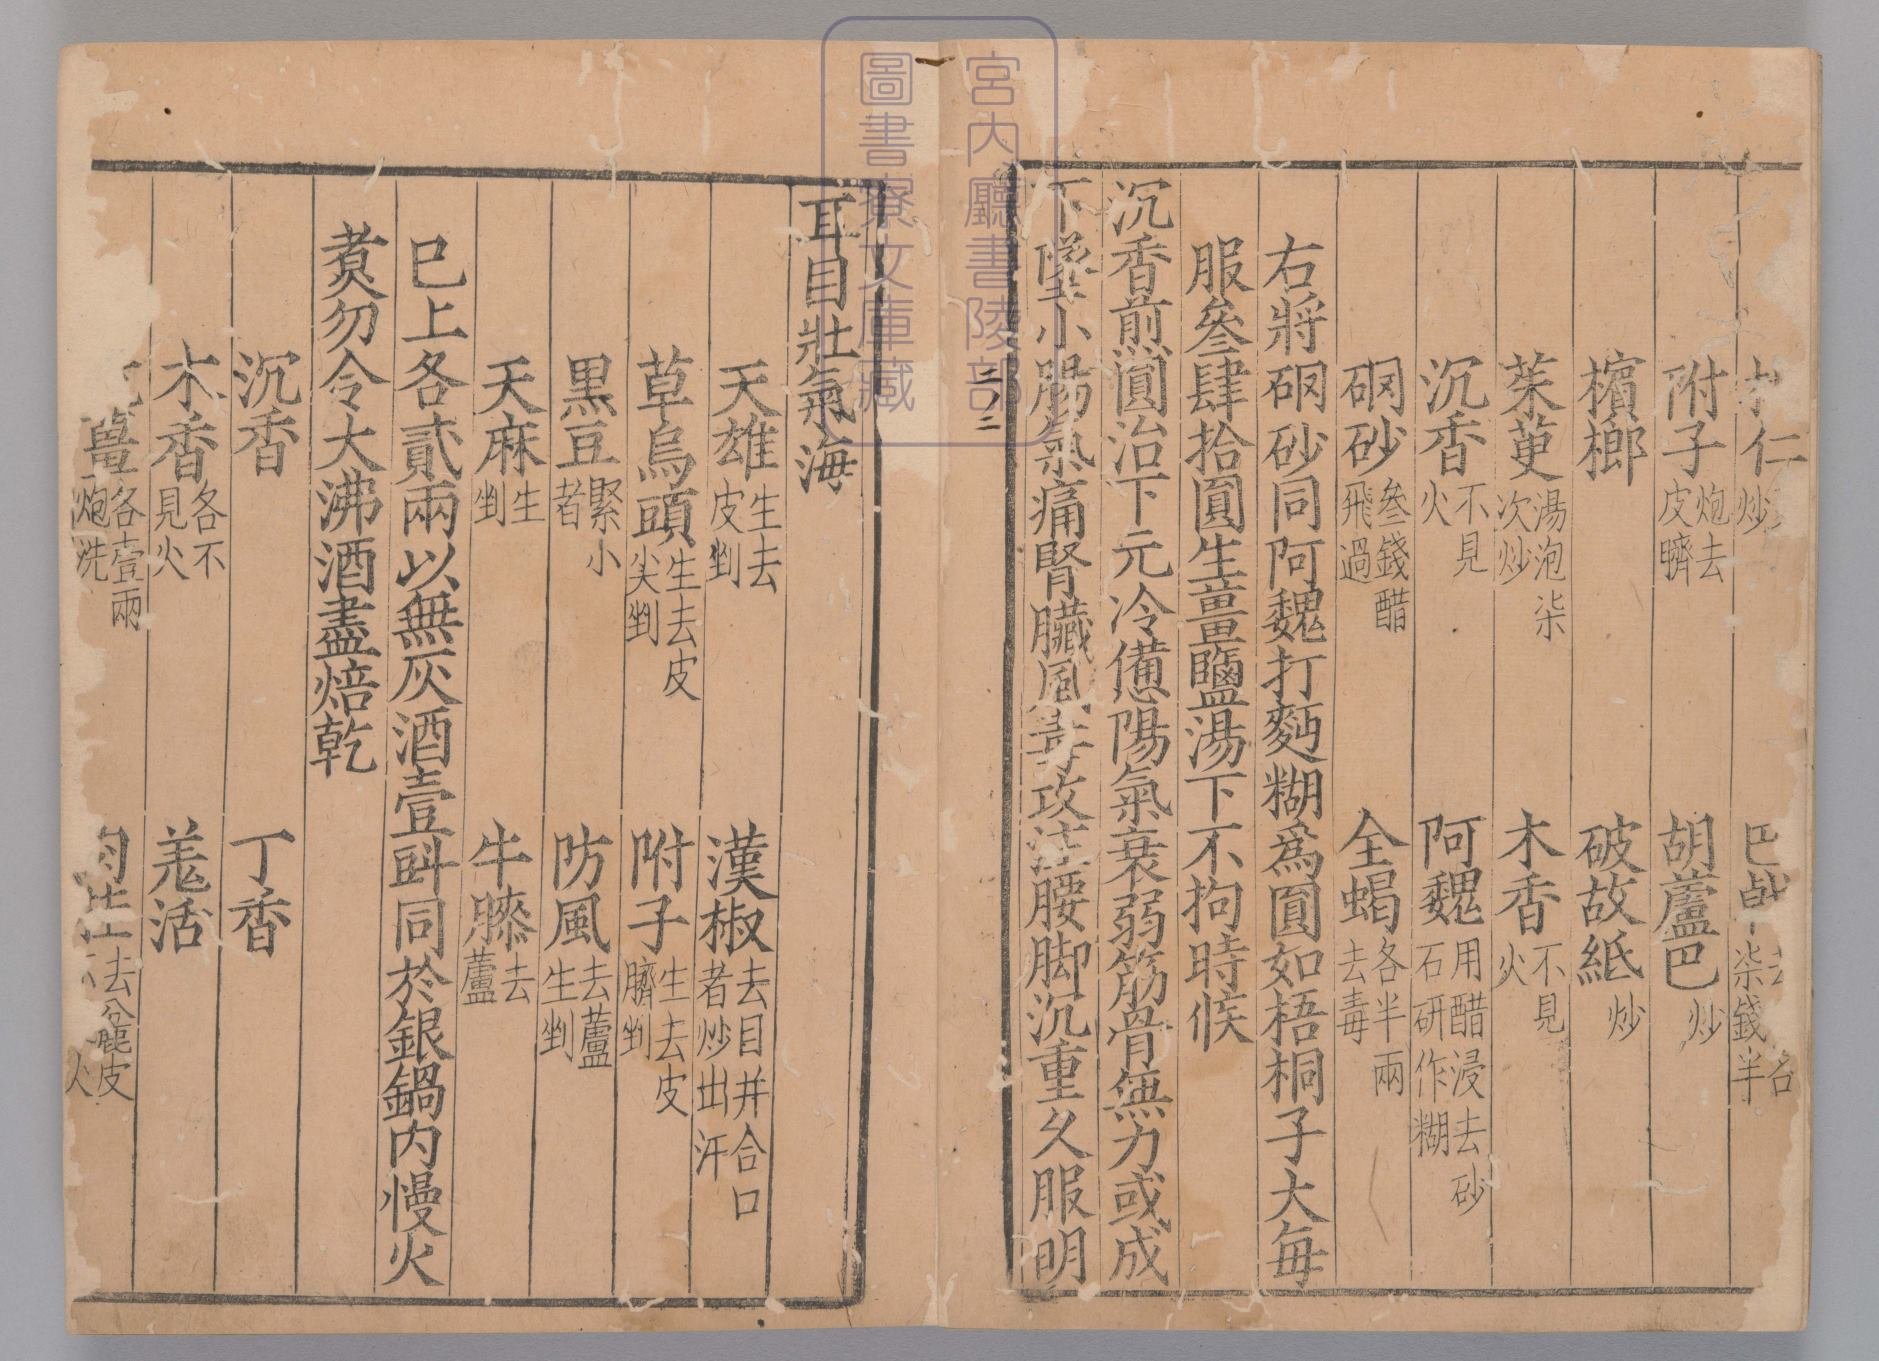 仁炒 巴
附子炮去皮臍 胡蘆巴炒
檳榔 破故紙炒
茱萸湯泡柒次炒 木香不見火
沉香不見火 阿魏用醋浸去砂石研作糊
硇砂叄錢醋飛過 全蝎各半兩去毒
右將硇砂同阿魏打麪糊爲圓如梧桐子大每
服叄肆拾圓生薑鹽湯下不拘時候
沉香煎圓治下元冷憊陽氣衰弱筋骨無力或成
下墜小腸氣痛腎臟風毒攻注腰脚沉重久服明
三〇二
耳目壯氣海
天雄生去皮剉 漢椒去目并合口者炒出汗
草烏頭生去皮尖剉 附子生去皮臍剉
黑豆緊小者 防風去蘆生剉
天麻生剉 牛膝去蘆
已上各貳兩以無灰酒壹㪷同於銀鍋内慢火
煮勿令大沸酒盡焙乾
沉香 丁香
木香各不見火 羌活
各壹兩炮洗 肉 去麄皮 火
宮内廳書陵部
圖書寮文庫藏